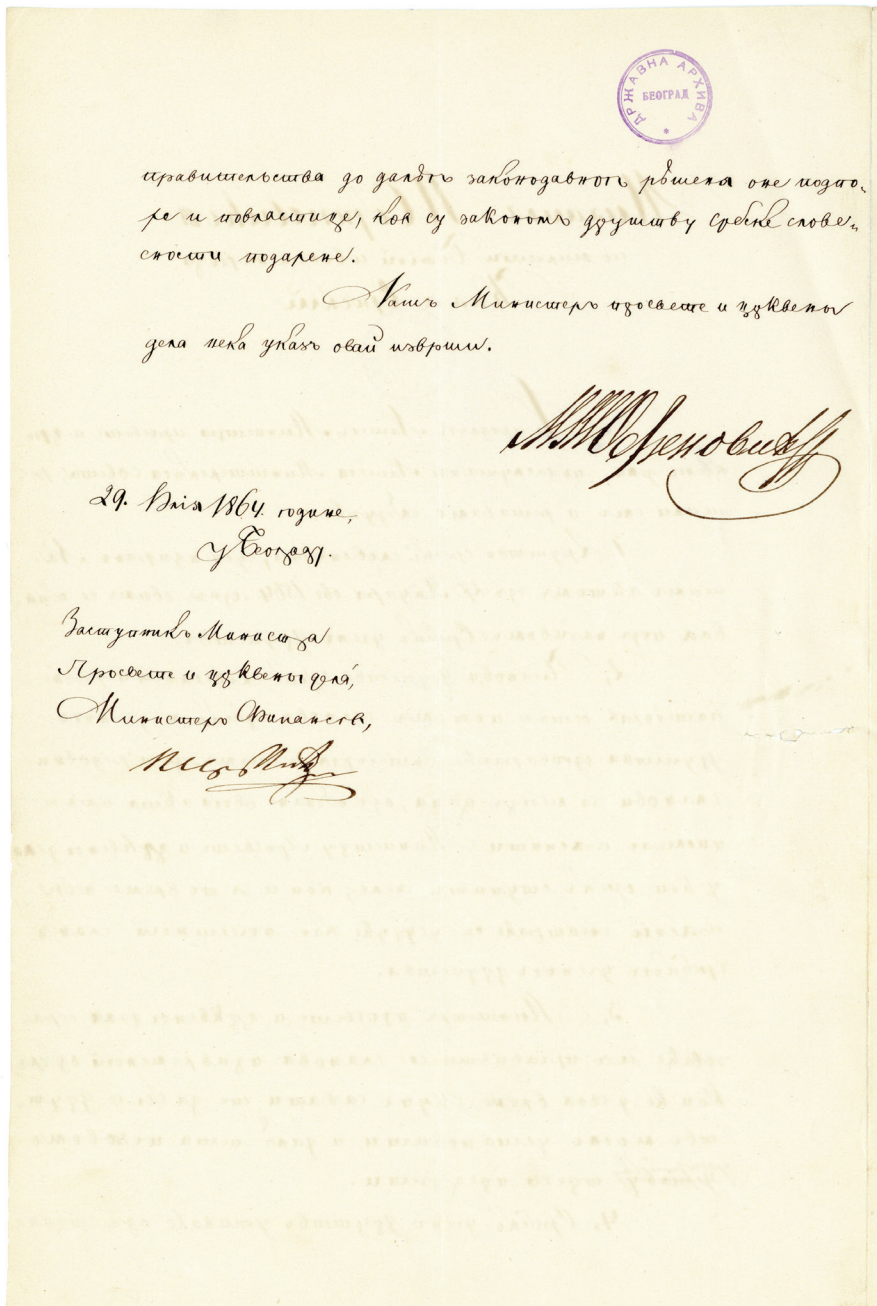 ДРЖАВНА АРХИВА
БЕОГРАД
правительства до далѣгъ законодавногъ рѣшеня оне подпо-
ре и повластице, кое су закономъ друштву србске слове-
сности подарене.
Нашъ Министеръ просвете и црквены
дела нека указъ овай изврши.
М. М. Обреновићь
29. Юлія 1864. године,
у Београду.
Заступникъ Министра
Просвете и црквены дела,
Министеръ Финансіе,